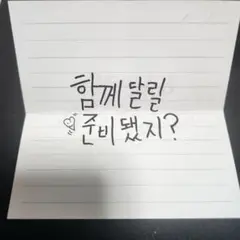 함께 달릴
준비됐지?